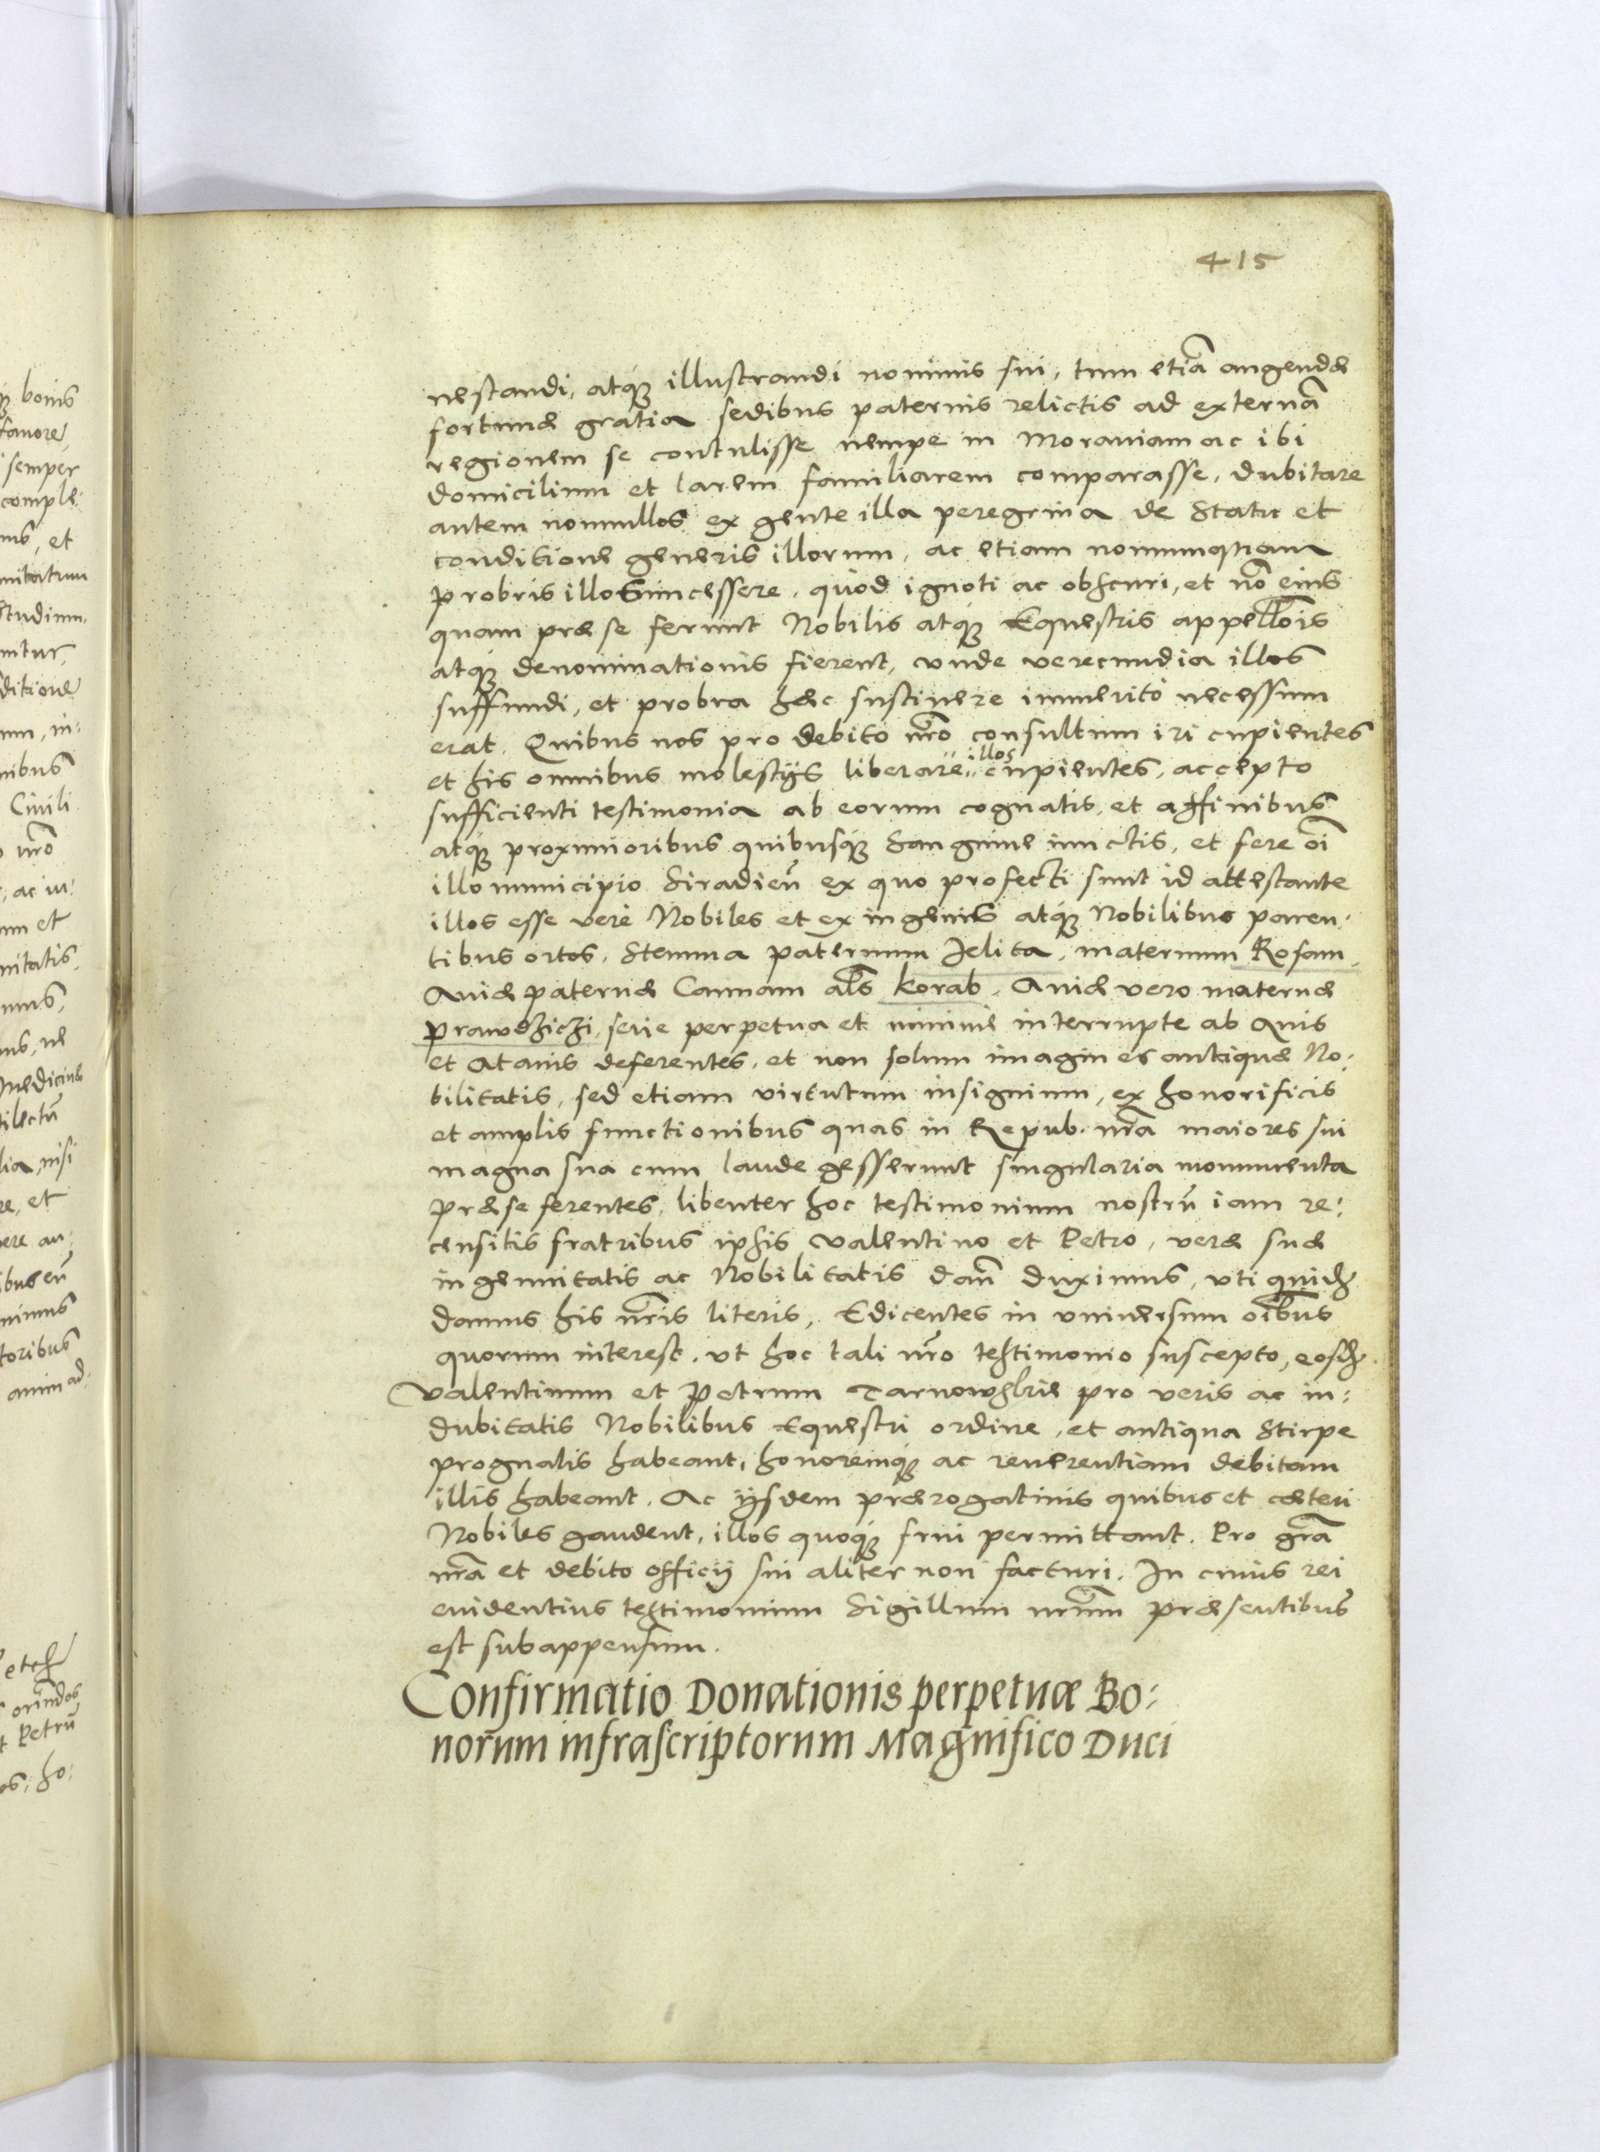 415
nestandi, atq́3 illustrandi nominis sui, tum etiã augendæ
fortunæ gratia sedibus paternis relictis ad externã
regionem se contulisse nempe in Morauiam ac ibi
domicilium et larem familiarem comparasse, dubitare
autem nonnullos ex gente illa peregrina de Statu et
conditione generis illorum, ac etiam nonnunquam
probris illos incessere, quòd ignoti ac obscuri, et nõ eius
quam præ se ferunt Nobilis atq́3 Equestris appellõis
atq́3 denominationis fierent, vnde verecundia illos
suffundi, et probra hæc sustinere immeritò necessum
erat. Quibus nos pro debito nr̃o consultum iri cupientes
et his omnibus molestijs liberare illos cupientes, accepto
sufficienti testimonia ab eorum cognatis, et affinibus
atq́3 proximioribus quibusq́3 Sanguine iunctis, et fere oĩ
illo municipio Siradieñ ex quo profecti sunt id attestante
illos esse verè Nobiles et ex ingenuis atq́3 Nobilibus paren-
tibus ortos. Stemma paternum Jelita, maternum Rosam,
Auiæ paternæ Cannam al̃s Korab, Auiæ vero maternæ
Prawdziczi, serie perpetua et minime interrupte ab Auis
et Atauis deferentes, et non solum imagines antiquæ No-
bilitatis, sed etiam virtutum insignium, ex honorificis
et amplis functionibus quas in Repub. nr̃a maiores sui
magna sua cum laude gesserunt singularia monumenta
præ se ferentes, libenter hoc testimonium nostrũ iam re-
censitis fratribus ipsis Valentino et Petro, veræ suæ
ingenuitatis ac Nobilitatis dañ duximus, vti quidẽ
damus his nr̃is literis, Edicentes in vniuersum oĩbus
quorum interest, vt hoc tali nr̃o testimonio suscepto, eosdẽ
Valentinum et Petrum Tarnowskie pro veris ac in-
dubitatis Nobilibus Equestri ordine, et antiqua Stirpe
prognatis habeant, honoremq́3 ac reuerentiam debitam
illis habeant. Ac ijsdem prærogatiuis quibus et cæteri
Nobiles gaudent, illos quoq́3 frui permittant. Pro gr̃a
nr̃a et debito officij sui aliter non facturi. In cuius rei
euidentius testimonium Sigillum nr̃um præsentibus
est subappensum.
Confirmatio Donationis perpetuæ Bo-
norum infrascriptorum Magnifico Duci